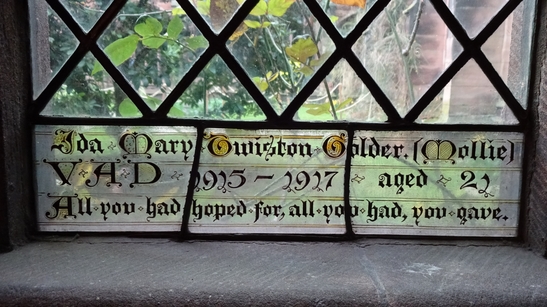 Ida Mary Twiston Golder. (Mollie)
V·A·D 1915 – 1917 aged 21
All·you·had hoped·for, all·you·had, you·gave.